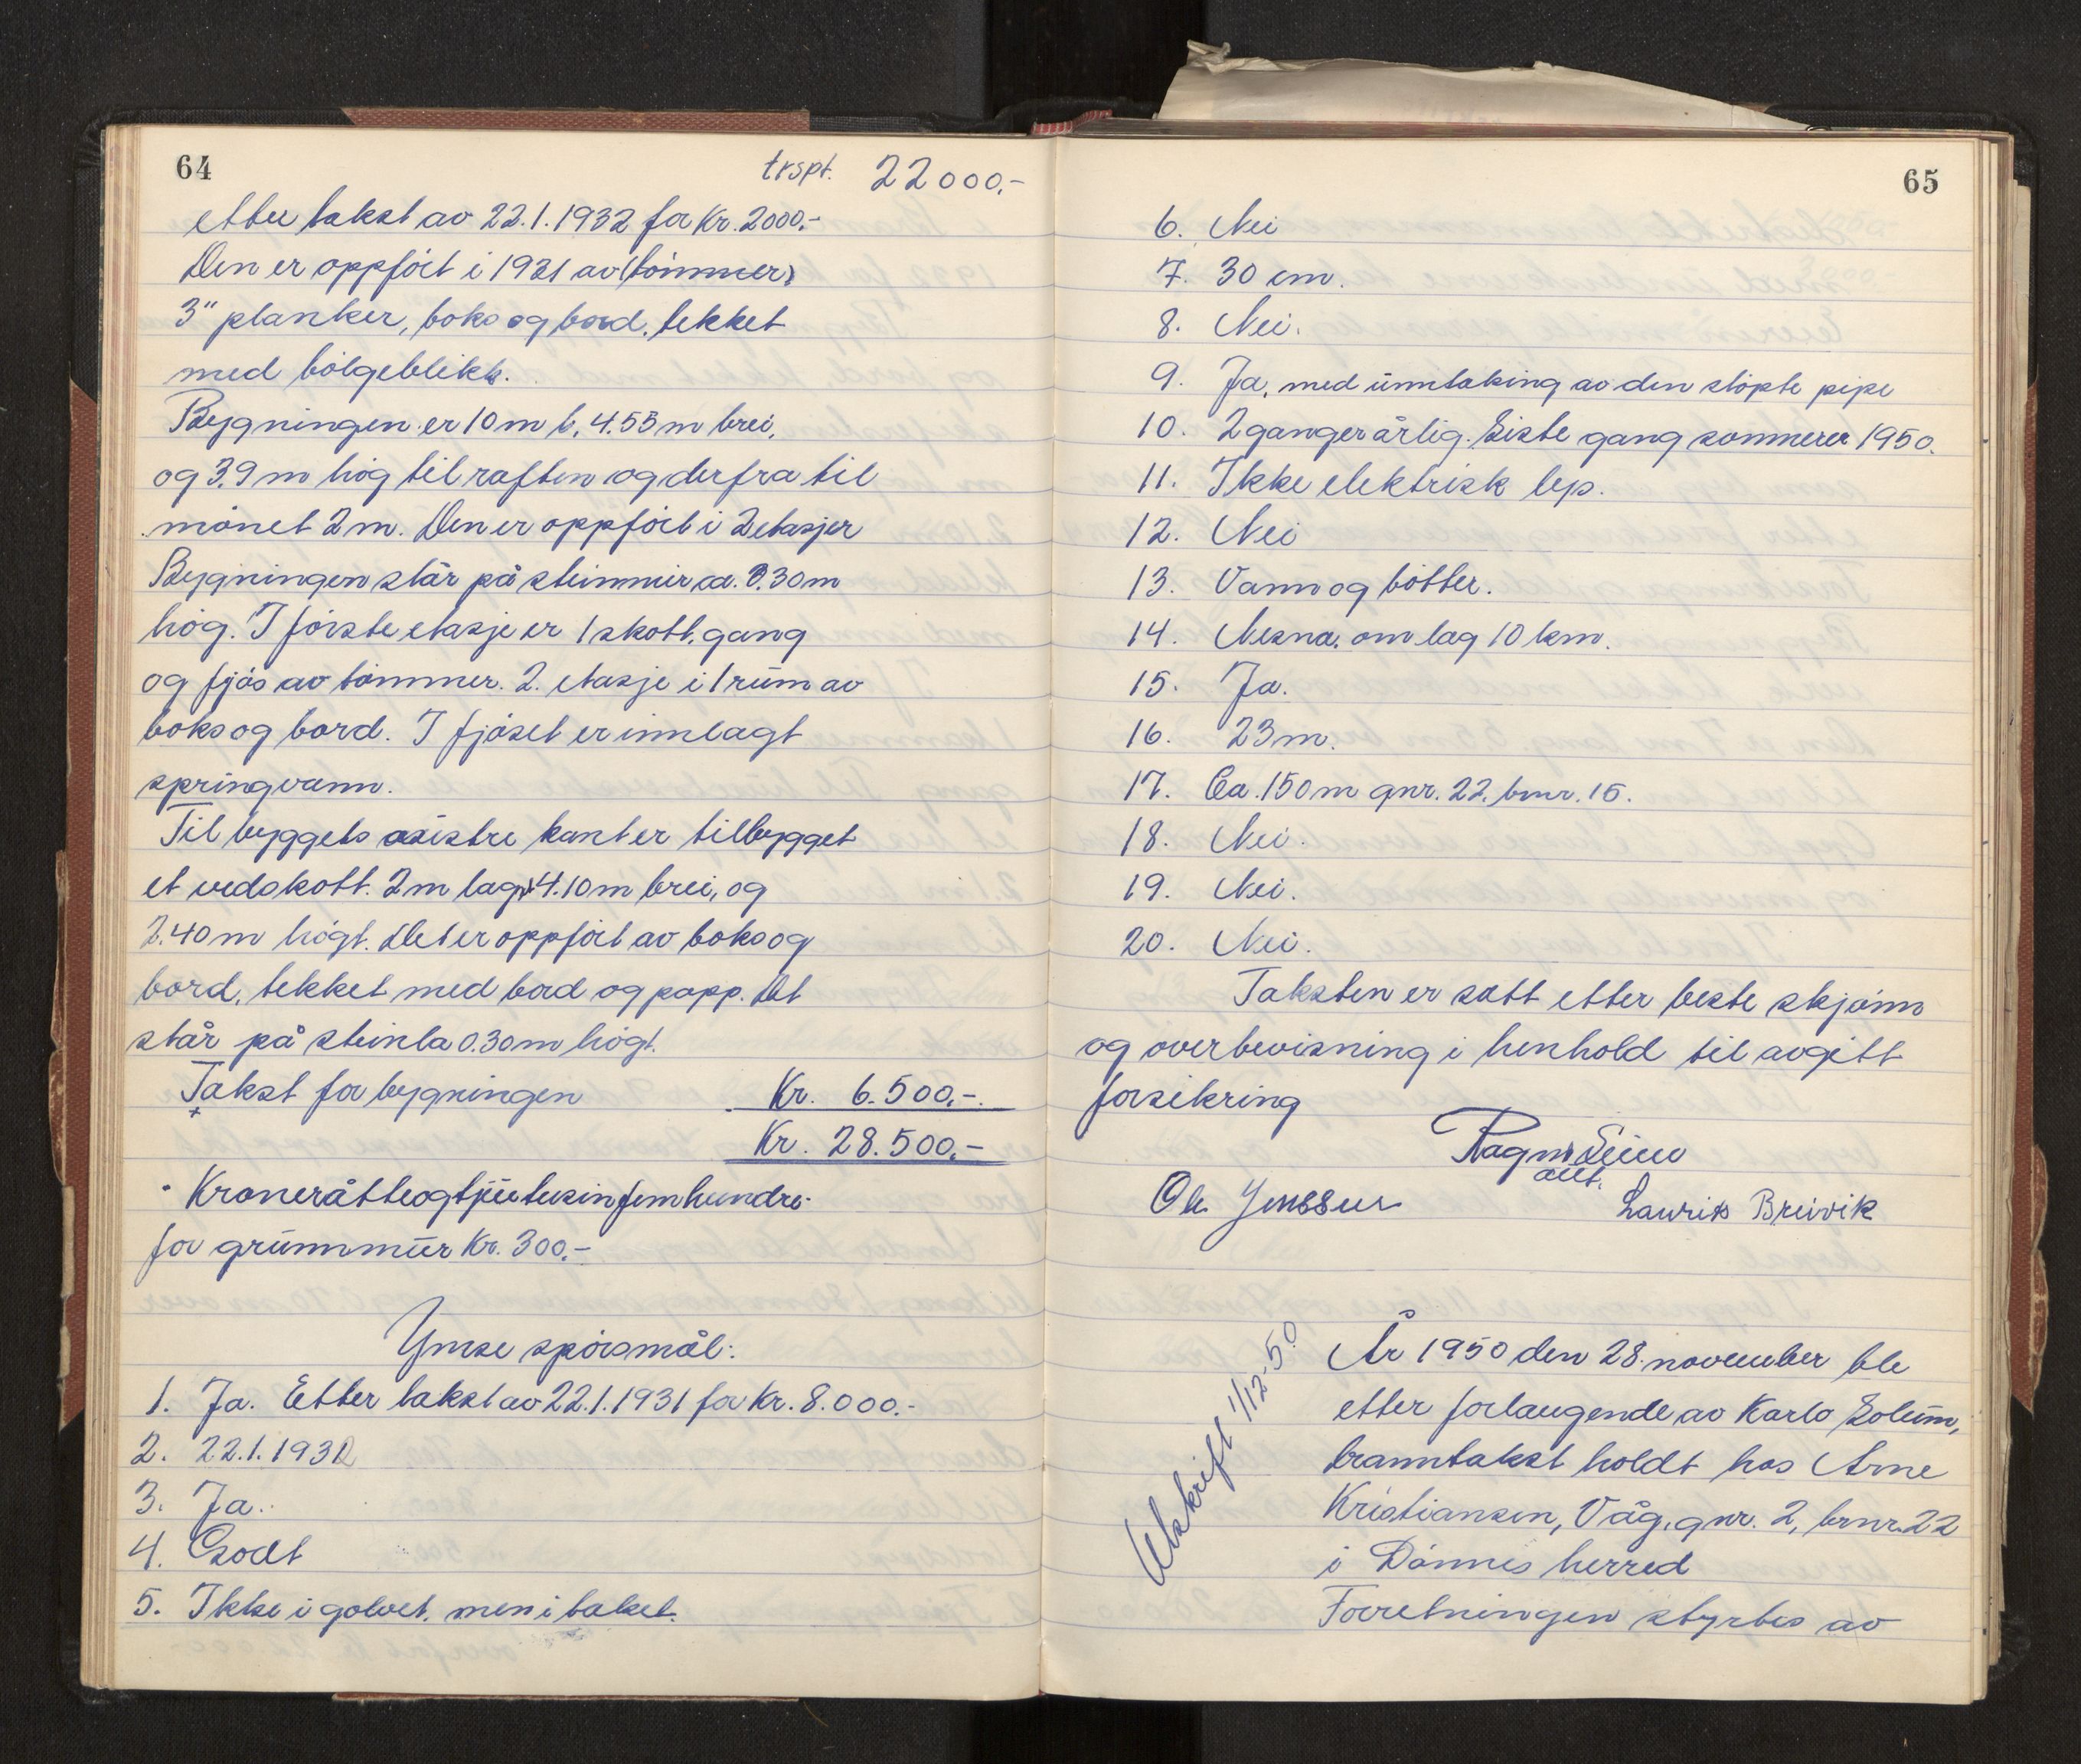 64
trspt. 22000.-
etter takst av 22.1.1932 for Kr. 2000.-
Den er oppfört i 1931 av (tömmer)
3" planker, boks og bord, tekket
med bölgeblikk.
Bygningen er 10 m l, 4.53 m brei,
og 3.9 m hög til raften og derfra til
mönet 2 m. Den er oppfört i 2 etasjer
Bygningen står på steinmur ca. 0.30 m
hög. I förste etasje er 1 skott, gang
og fjös av tömmer. 2. etasje i 1 rum av
boks og bord. I fjöset er innlagt
springvann.
Til byggets östre kant er tilbygget
et vedskott. 2 m lag, 4.10 m brei, og
2.40 m högt. Det er oppfört av boks og
bord, tekket med bord og papp. Det
står på steinla 0.30 m högt.
Takst for bygningen Kr. 6.500.-
Kr. 28.500.-
Kroneråtteogtjuetusinfemhundre
for grunnmur Kr. 300.-
Ymse spörsmål:
1. Ja. Etter takst av 22.1.1931 for Kr. 8.000.-
2. 22.1.1932
3. Ja.
4. Godt
5. Ikke i golvet, men i taket.
65
6. Nei
7. 30 cm.
8. Nei.
9. Ja, med unntaking av den stöpte pipe
10. 2 ganger årlig. Siste gang sommerer 1950.
11. Ikke elektrisk lys.
12. Nei
13. Vann og bötter.
14. Nesna, om lag 10 km.
15. Ja.
16. 23 m.
17. Ca. 150 m gnr. 22. bnr. 15.
18. Nei.
19. Nei.
20. Nei.
Taksten er satt etter beste skjönn
og overbevisning i henhold til avgitt
forsikring
Ragnv.
Ole Jenssen Laurits Breivik
Utskrift 1/12-50
År 1950 den 28. november ble
etter forlangende av Karlo Solum,
branntakst holdt hos Arne
Kristiansen, Våg, gnr. 2, brnr. 22
i Dönnes herred
Forretningen styrtes av